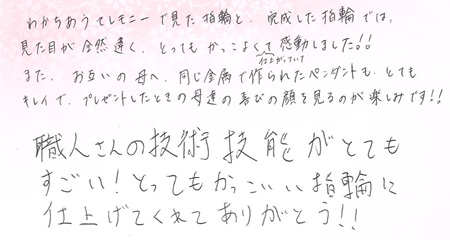 わかちあうセレモニーで見た指輪と、完成した指輪では、
見た目が全然違く、とってもかっこよくて仕上がっていて感動しました!!
また、お互いの母へ、同じ金属で作られたペンダントも、とても
キレイで、プレゼントしたときの母達の喜びの顔を見るのが楽しみです!!
職人さんの技術技能がとても
すごい!とってもかっこいい指輪に
仕上げてくれてありがとう!!